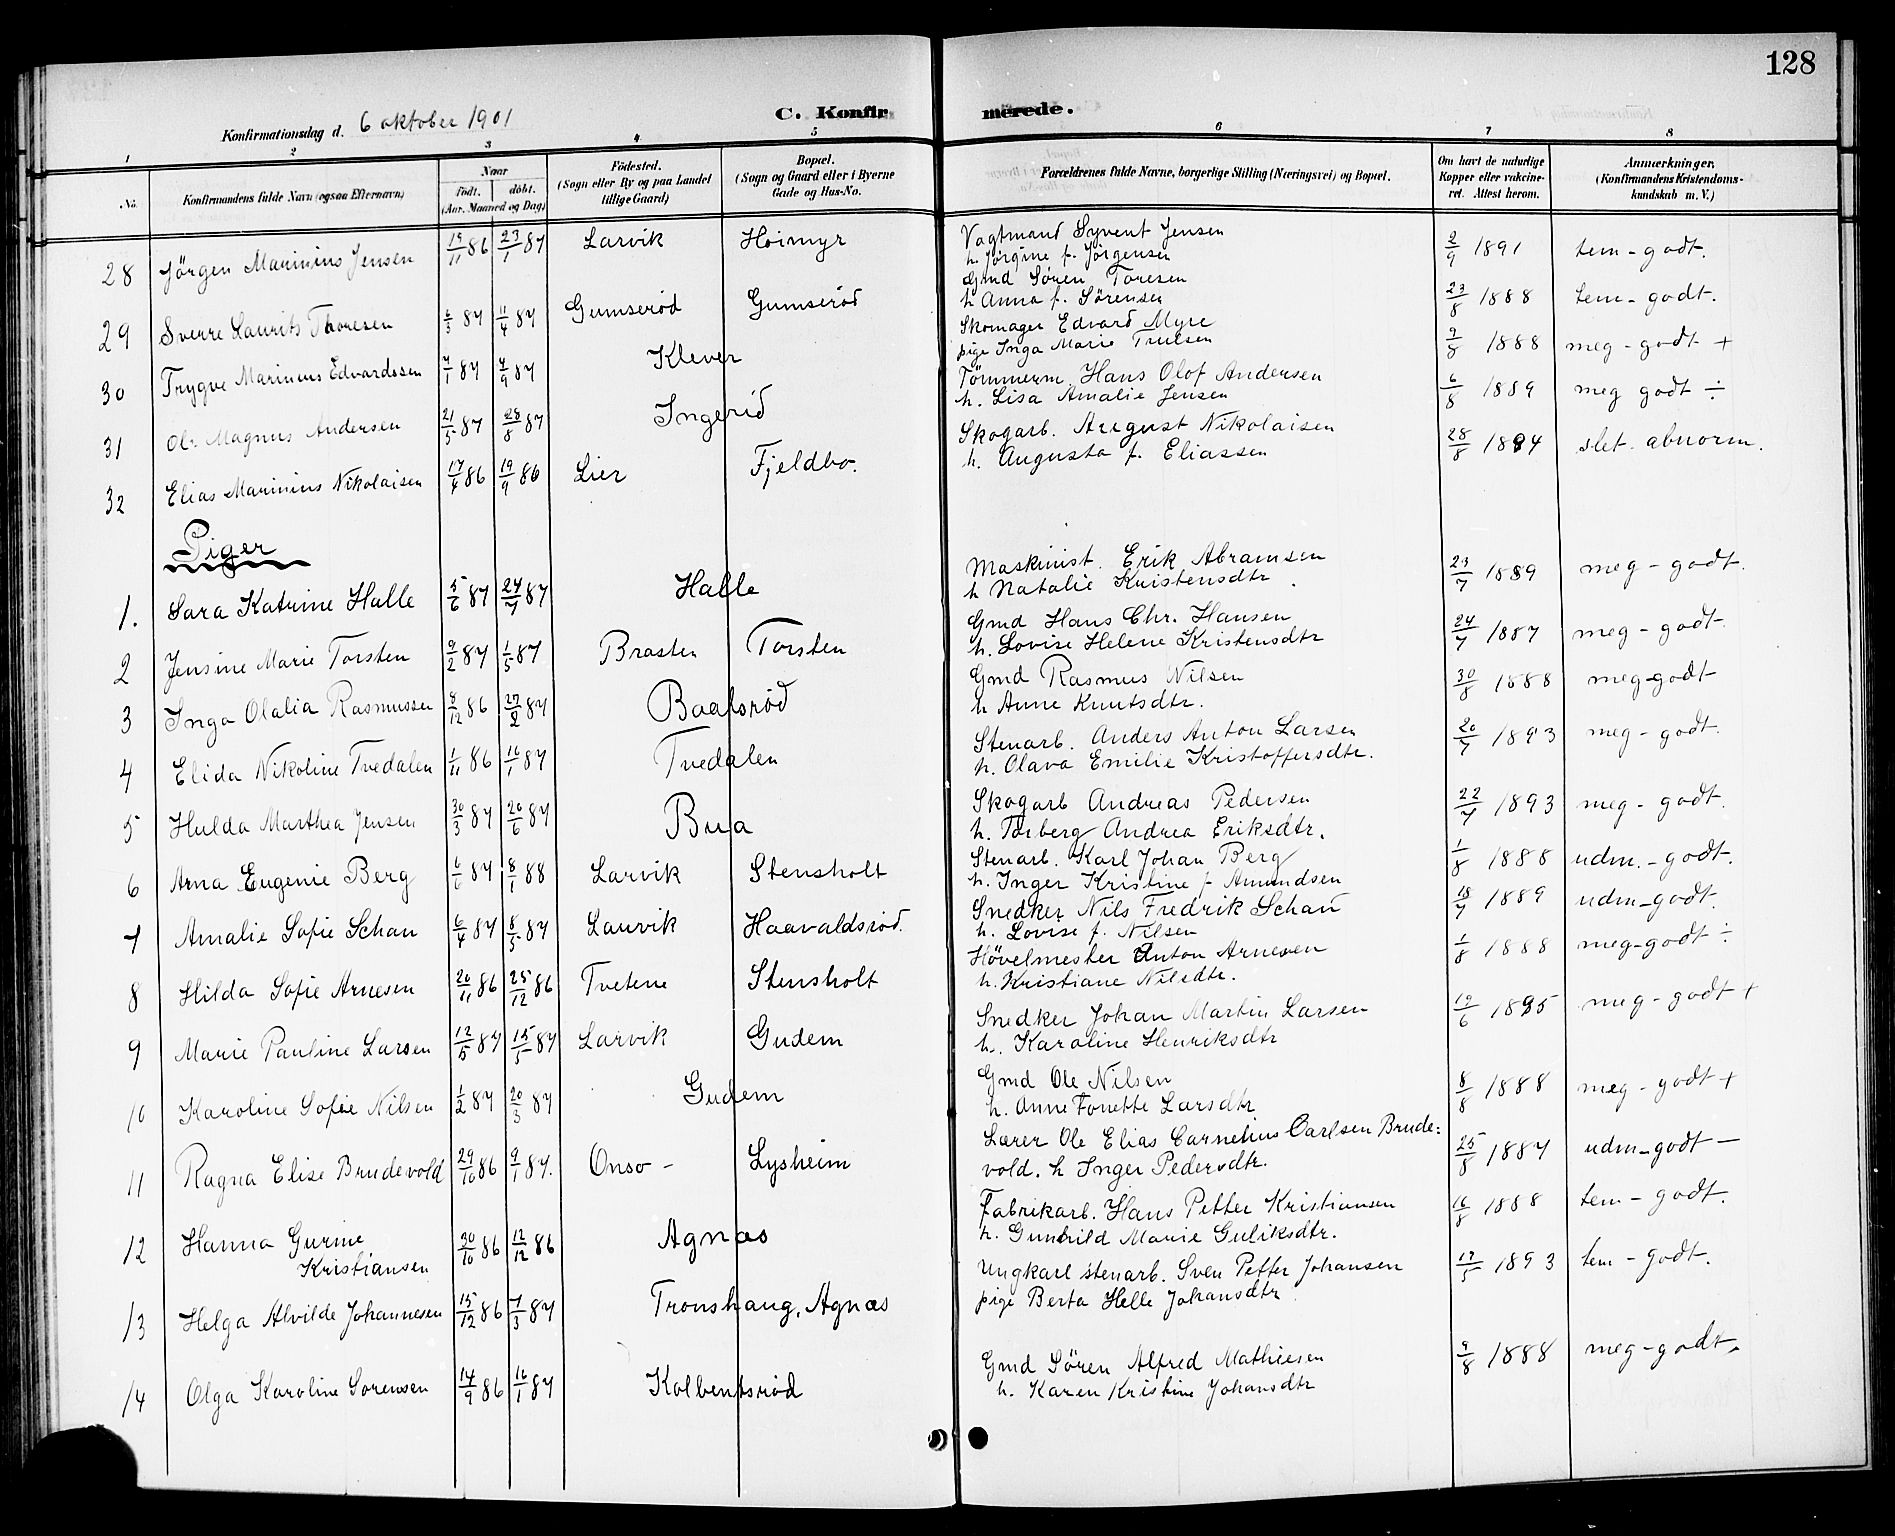 128
C. Konfirmerede.
Konfirmationsdag d. 6 oktober 1901
1 2 3 4 5 6 7 8
No.
Konfirmandens fulde Navn (ogsaa Efternavn)
Naar
födt. döbt.
(Aar. Maaned og Dag)
Födested.
(Sogn eller By og paa Landet
tillige Gaard)
Bopæl.
(Sogn og Gaard eller i Byerne
Gade og Hus-No.
Forældrenes fulde Navne, borgerlige Stilling (Næringsvei) og Bopæl.
Om havt de naturlige
Kopper eller vaccine-
ret. Attest herom.
Anmærkninger.
(Konfirmandens Kristendoms-
kundskab m. V.)
28 Jörgen Marinius Jensen 19/11 86 23/1 87 Larvik Höimyr Vagtmand Syvent Jensen
h. Jörgine f. Jörgensen 2/9 1891 tem-godt.
29 Sverre Laurits Thoresen 6/3 87 11/4 87 Gumseröd Gumseröd Gmd Sören Toresen
h Anna f. Sörensen 23/8 1888 tem-godt.
30 Trygve Marinius Edvardssen 7/1 87 4/9 87 Klever Skomager Edvard Myre
pige Inga Marie Trulsen 9/8 1888 meg-godt +
31 Ole Magnus Andersen 21/5 87 28/8 87 Ingeröd Tömmerm. Hans Olof Andersen
h. Lisa Amalie Jensen 6/8 1889 meg godt ÷
32 Elias Marinius Nikolaisen 17/4 86 19/9 86 Lier Fjeldbo. Skogarb. August Nikolaisen
h. Augusta f. Eliassen 28/8 1894 slet. abnorm.
Piger
1. Sara Katrine Halle 5/6 87 24/7 87 Halle Maskinist. Erik Abramsen
h Natalie Kristensdtr. 23/7 1889 meg-godt.
2 Jensine Marie Torsten 9/2 87 1/5 87 Brasten Torsten Gmd Hans Chr. Hansen
h. Lovise Helene Kristensdtr 24/7 1887 meg-godt.
3 Inga Olalia Rasmussen 8/12 86 27/2 87 Baalsröd Gmd Rasmus Nilsen
h Anne Knutsdtr. 30/8 1888 meg-godt
4 Elida Nikoline Tvedalen 1/11 86 16/1 87 Tvedalen Stenarb. Anders Anton Larsen
h. Olava Emilie Kristoffersdtr. 20/7 1893 meg-godt.
5 Hulda Marthea Jensen 30/3 87 26/6 87 Bua Skogarb Andreas Pedersen
h. Torberg Andrea Eriksdtr. 22/7 1893 meg-godt.
6 Arna Eugenie Berg 6/6 87 8/1 88 Larvik Stensholt Stenarb. Karl Johan Berg
h. Inger Kristine f Amundsen 1/8 1888 udm.-godt.
7 Amalie Sofie Schau 6/4 87 8/5 87 Laurvik Haavaldsröd. Snedker Nils Fredrik Schau
h. Lovise f. Nilsen 18/7 1889 udm-godt.
8 Hilda Sofie Arnesen 20/11 86 25/12 86 Tvetene Stensholt Hövelmester Anton Arnesen
h. Kristiane Nilsdtr. 1/8 1888 meg-godt ÷
9 Marie Pauline Larsen 12/5 87 15/5 87 Larvik Gudem Snedker Johan Martin Larsen
h. Karoline Henriksdtr 19/6 1895 meg-godt +
10 Karoline Sofie Nilsen 1/2 87 20/3 87 Gudem Gmd Ole Nilsen
h. Anne Tonette Larsdtr. 8/8 1888 meg-godt +
11 Ragna Elise Brudevold 29/10 86 9/1 87. Onsö - Lysheim Lærer Ole Elias Cornelius Carlsen Brude:
vold. h Inger Pedersdtr. 25/8 1887 udm-godt —
12 Hanna Gurine
Kristiansen 30/10 86 12/12 86 Agnæs Fabrikarb. Hans Petter Kristiansen
h. Gunhild Marie Guliksdtr. 16/8 1888 tem-godt.
13 Helga Alvilde Johannesen 15/12 86 7/3 87 Tronshaug, Agnæs Ungkarl stenarb. Sven Petter Johansen
pige Berta Helle Johansdtr 17/5 1893 tem-godt.
14 Olga Karoline Sörensen 14/9 86 16/1 87 Kolbentsröd Gmd Sören Alfred Mathiesen
h. Karen Kristine Johansdtr 9/8 1888 meg-godt.